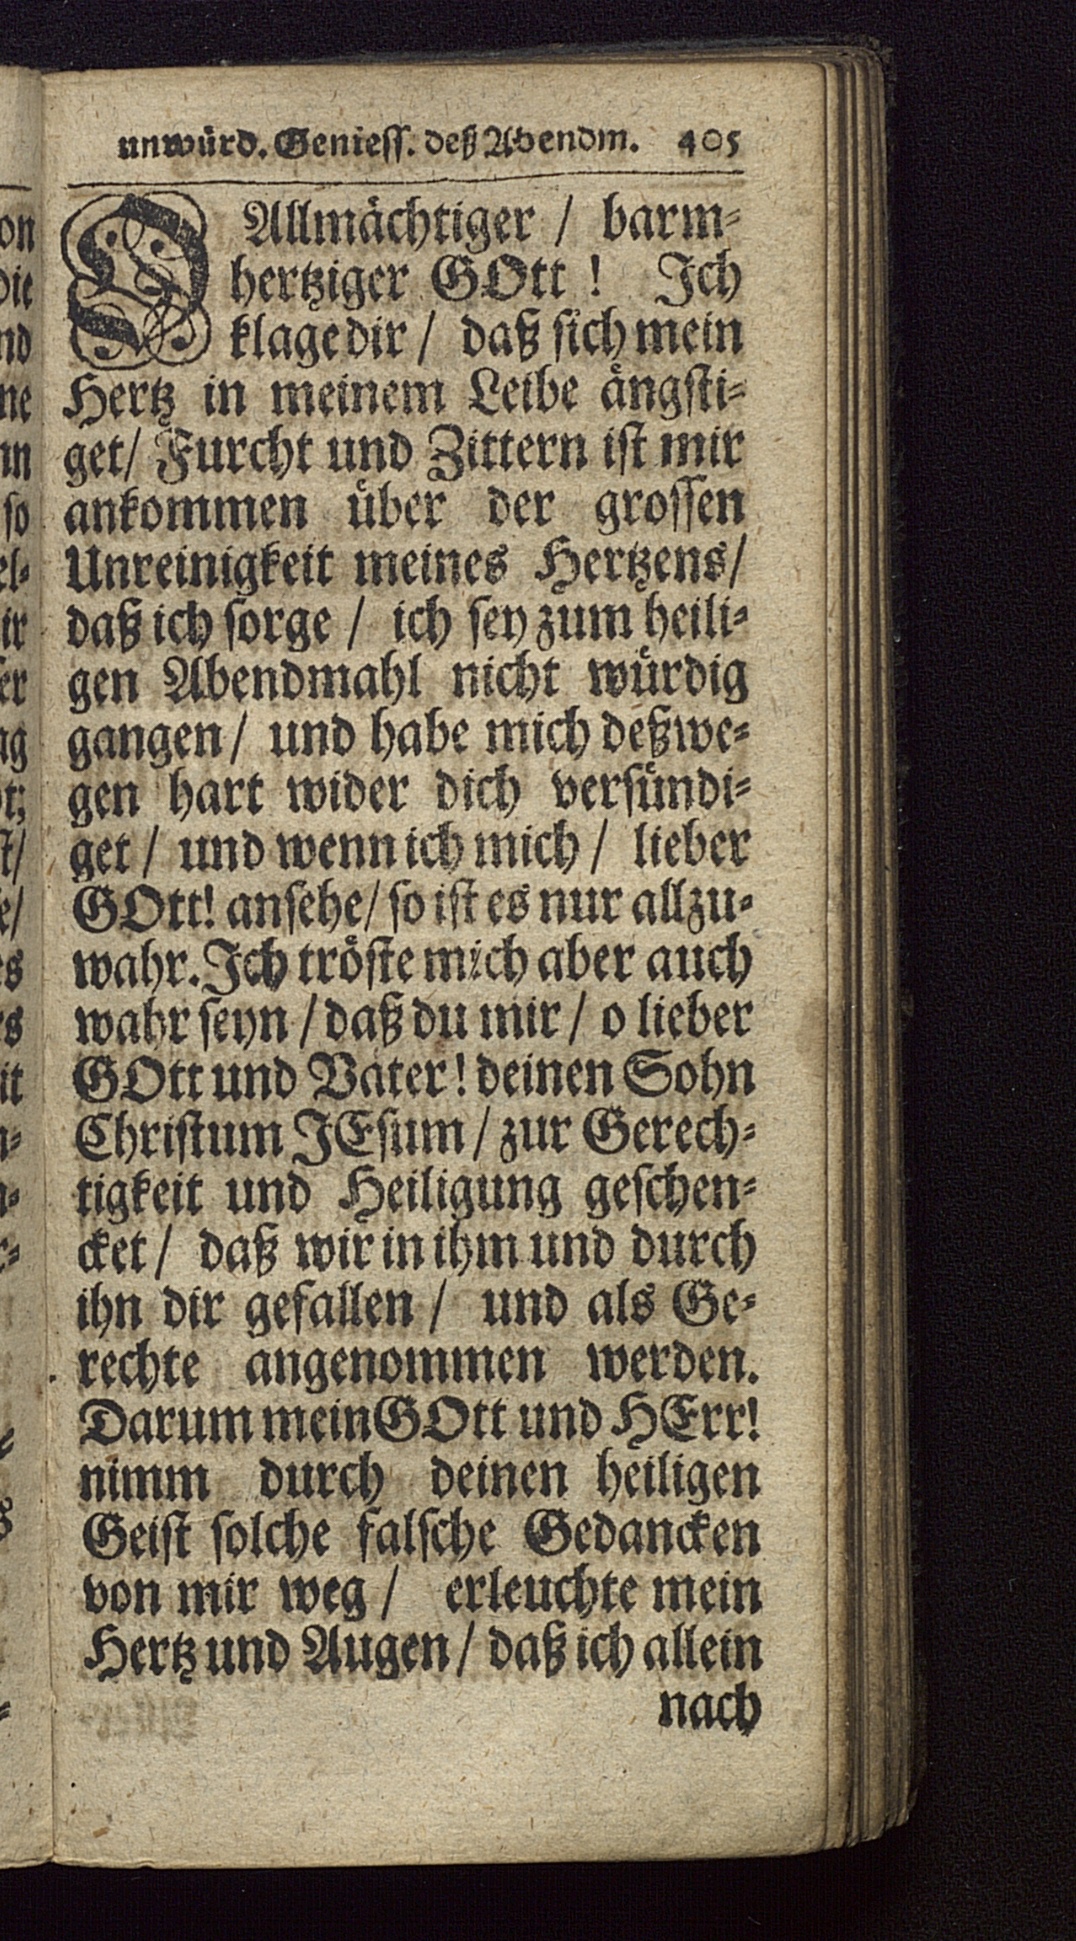 unwürd. Geniess. deß Abendm. 405
O Allmächtiger / barm-
hertziger GOtt! Ich
klage dir / daß sich mein
Hertz in meinem Leibe ängsti-
get/ Furcht und Zittern ist mir
ankommen über der grossen
Unreinigkeit meines Hertzens/
daß ich sorge / ich sey zum heili-
gen Abendmahl nicht würdig
gangen / und habe mich deßwe-
gen hart wider dich versündi-
get / und wenn ich mich / lieber
GOtt! ansehe/ so ist es nur allzu-
wahr. Ich tröste mich aber auch
wahr seyn / daß du mir / o lieber
GOtt und Vater! deinen Sohn
Christum JEsum / zur Gerech-
tigkeit und Heiligung geschen-
cket / daß wir in ihm und durch
ihn dir gefallen / und als Ge-
rechte angenommen werden.
Darum mein GOtt und HErr!
nimm durch deinen heiligen
Geist solche falsche Gedancken
von mir weg / erleuchte mein
Hertz und Augen / daß ich allein
nach